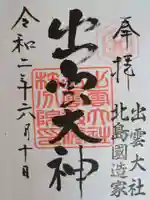 奉拝
出雲大社
北島國造家
出雲大神
令和二年六月十日